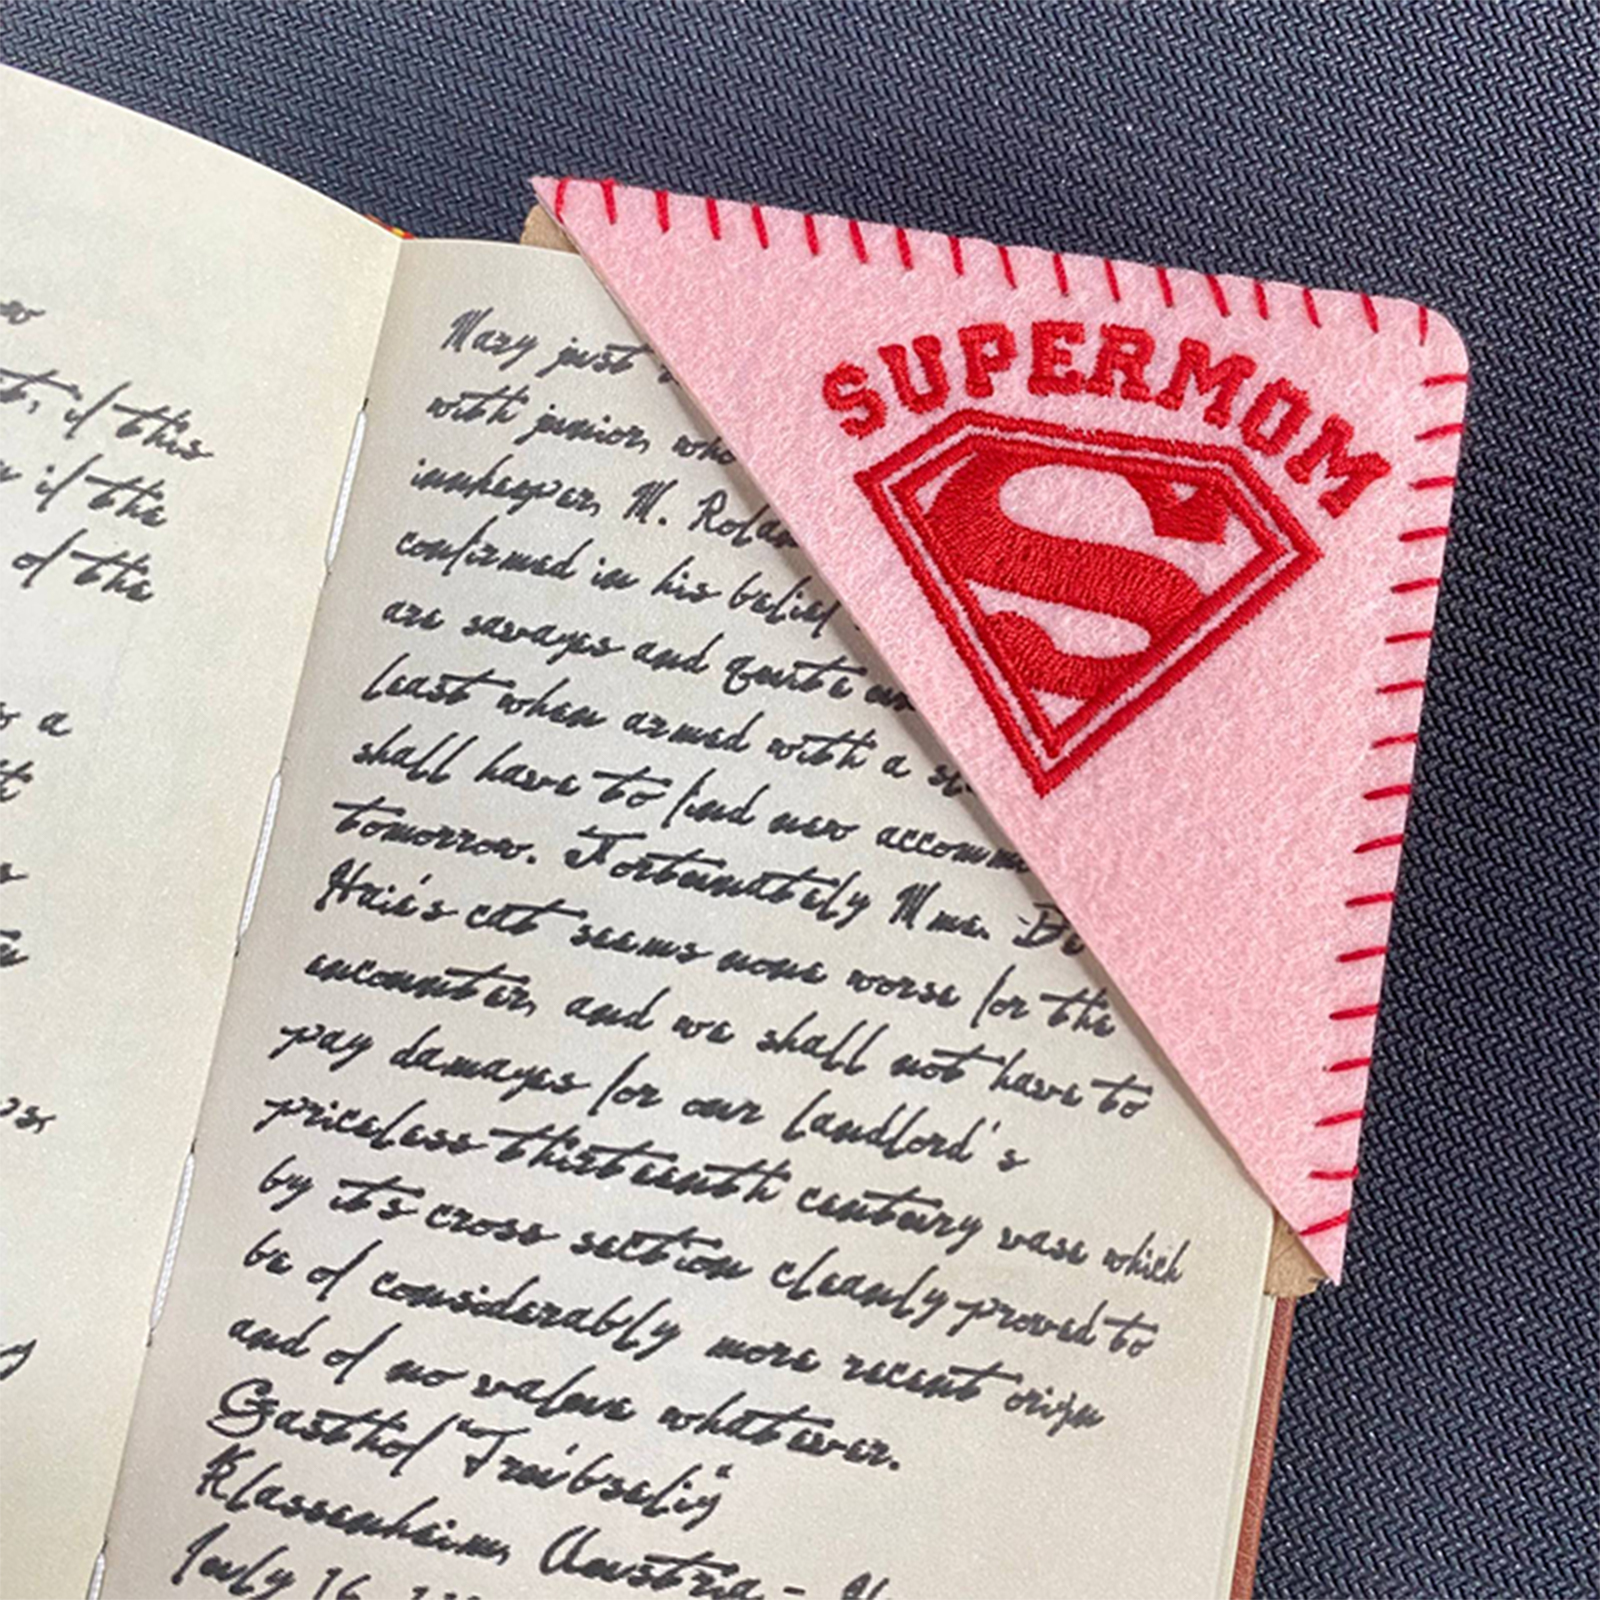 w
t, if this
if the
of the
a
SUPERMOM
S
Mary just
with junior, who
innkeeper, M. Rolan
confirmed in his belief
are savages and quite un
least when armed with a st
shall have to find new accomm
tomorrow. Fortunately Mme. De
Haie's cat seems none worse for the
encounter, and we shall not have to
pay damages for our landlord's
priceless thirteenth century vase which
by it's cross section cleanly proved to
be of considerably more recent origin
and of no value whatever.
Gasthof "Treibselig"
Klassenheim, Austria -
July 16,